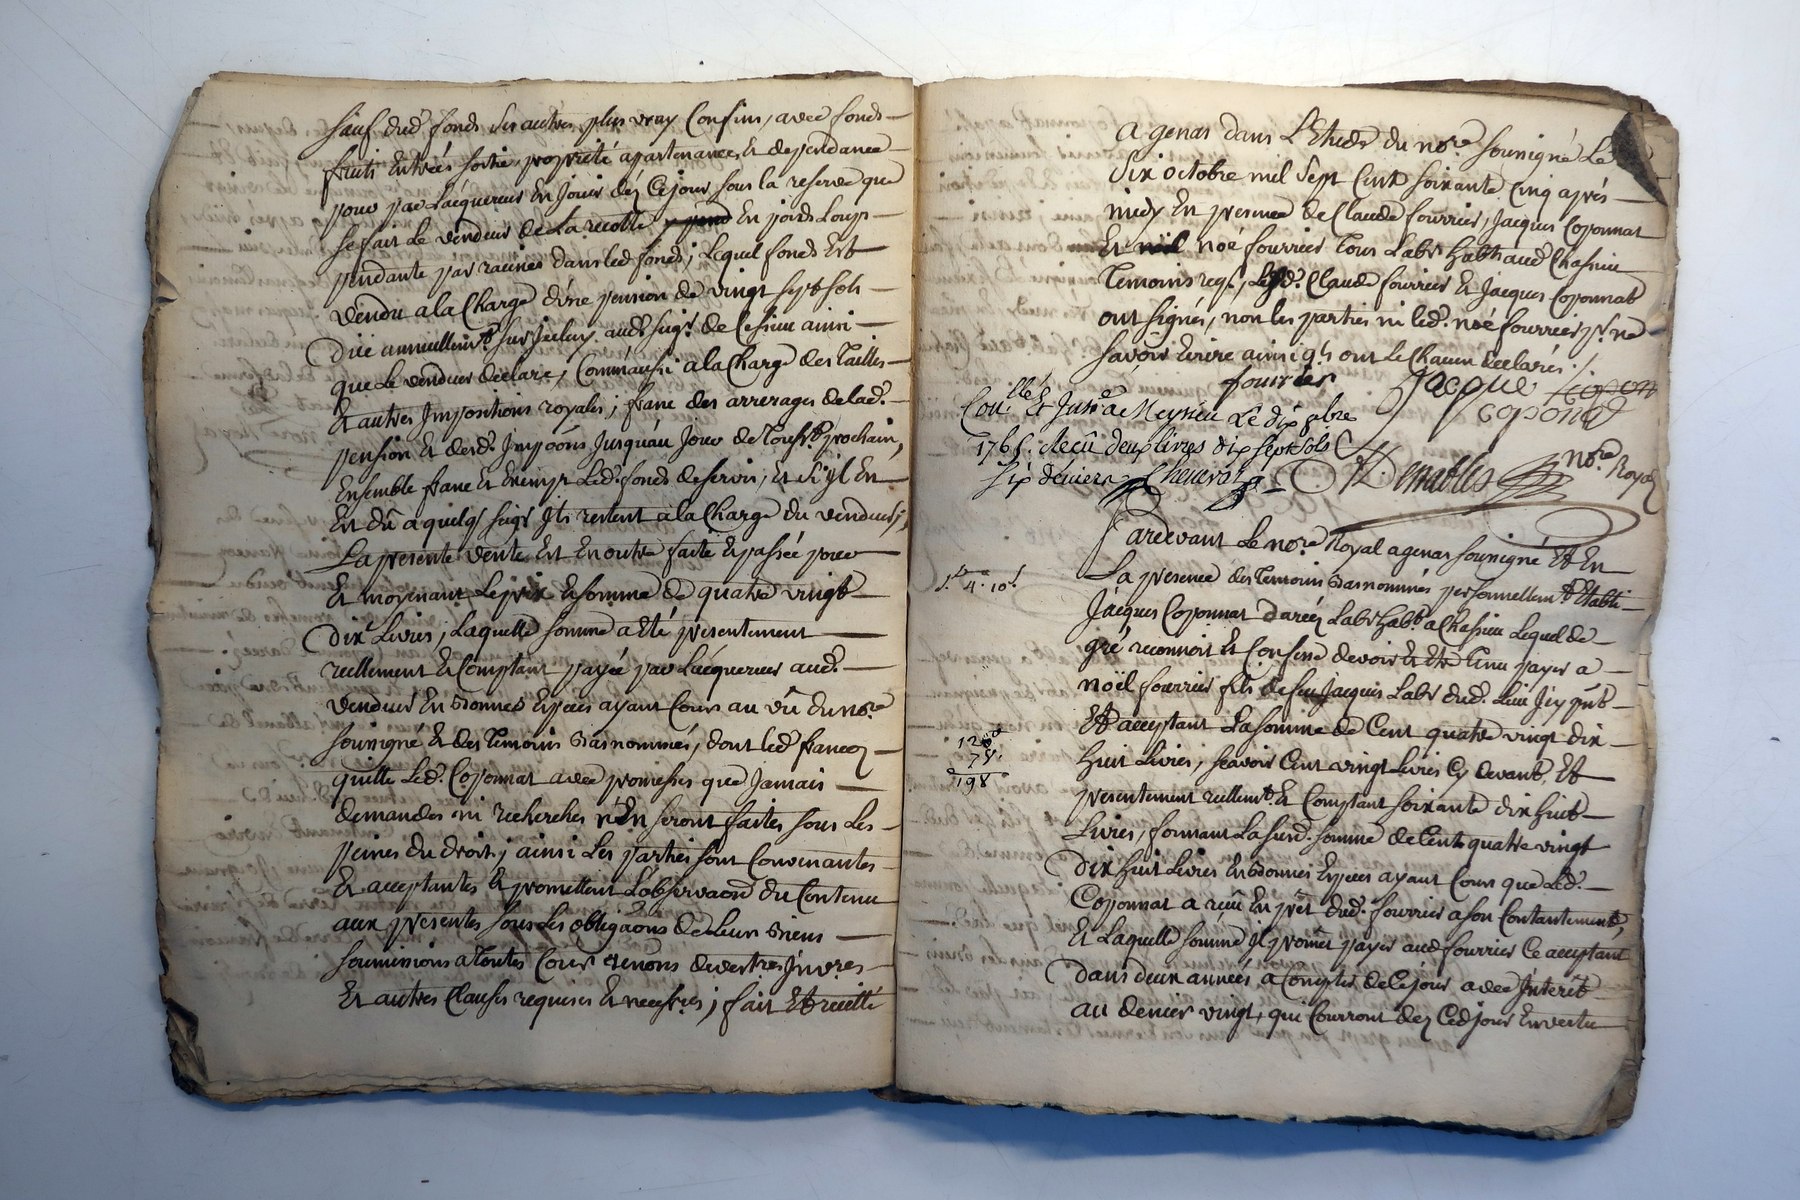 sauf dud. fonds ses autres plus vray Confins, avec fonds
fruits Entrées sortie propriété apartenances Et dependance
pour par L'acquereur En Jouir déz Cejour sous la reserve que
se fait Le vendeur de La recolte En poids Loup
pendante par racines dans led fonds; Lequel fonds Est
vendu a la Charge d'une pension de vingt sept sols
düe annuellemt. sur Jceluy aud. Sieur ainsi
que Le vendeur declare, Comm'aussi a la Charge des Tailles
Et autres Jmpositions royales; franc des arrerages de lad.
pension Et desd. Jmpoõns Jusqu'au Jour de Touss.t prochain,
Ensemble franc Et Exempt Led. fonds de servis, Et S'yl En
Est dû a quelq' seigr Jls restent a la Charge du vendeur;
La presente vente Est En outre faite Et passée pour
Et moyenant Le prix Et somme de quatre vingt
Dix Livres, Laquelle somme a eté presentement
reellement Et Comptant payée par L'acquereur aud.
vendeur En bonnes Especes ayant Cours au vû du nore.
soussigné Et des Temoins bas nommés, dont led francoz
quitte Led. Coponnat avec promesses que Jamais
demandes ni recherches n'En seront faites sous Les
peines du droit; ainsi Les parties sont Convenantes
Et acceptantes Et promettent L'observaõn du Contenu
aux presentes sous Les obligaõns de Leurs biens
soumissions a Toutes Cours renonõns dvertres Jnores
Et autres Clauses requises Et necessres; fait Et recitté
a genas dans L'Etude du nore. soussigné Le
Dix octobre mil sept Cent soixante Cinq aprés
midy En presence de Claude fourrier, Jacques Coponnat
Et noé fourrier Tous Labrs habts aud. Chassieu
Temoins reqs, Lesd. Claude fourrier Et Jacques Coponnat
ont signés, non les parties ni led. noé fourrier pr. ne
sçavoir Ecrire ainsi qls ont Le Chacun declarés.
fourrier Jacque Copon
coponat
Conllé Et Jnsré a Meyzieu Le dix 8bre
1765. Reçû deux livres dix sept sols
six deniers Chenevat
Demables nore. Royal
Pardevant Le nore. Royal a genas soussigné Et En
1tr. 4. 10s
La presence des Temoins bas nommés personnellemt. Etabli
Jacques Coponnat Daréz Labr habt. a Chassieu Lequel de
gré reconnoit Et Confesse devoir Et Etre Tenu payer a
noël fourrier fils de feu Jacques Labr dud. Lieu Jcy pnt.
Et acceptant La somme de Cent quatre vingt dix
120
78.
198
huit Livres, sçavoir Cent vingt Livres Cy devant, Et
presentement reellemt. Et Comptant soixante dix huit
Livres, formant La susd. somme de Cent quatre vingt
Dix huit Livres En bonnes Especes ayant Cours que Led.
Coponnat a reçû En prêt dud. fourrier a son Contantement,
Et Laquelle somme Jl promet payer aud fourrier Ce acceptant
Dans deux années a Compter de Cejour avec Jnterêt
au denier vingt, qui Courront déz Cedjour En vertu